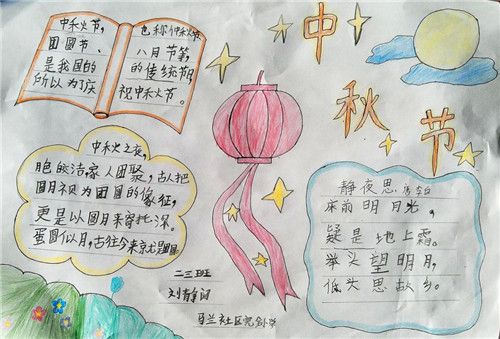 中秋节
中秋节,
团圆节、
是我国的
所以为了庆
也称仲秋节
八月节等,
的传统节
祝中秋节。
中秋之夜,
皎洁,家人团聚,古人把
圆月视为团圆的象征,
更是以圆月来寄托深。
蛋圆似月,古往今来
静夜思 李白
床前明月光,
疑是地上霜。
举头望明月,
低头思故乡。
二三班
刘静
马兰社区完全小学